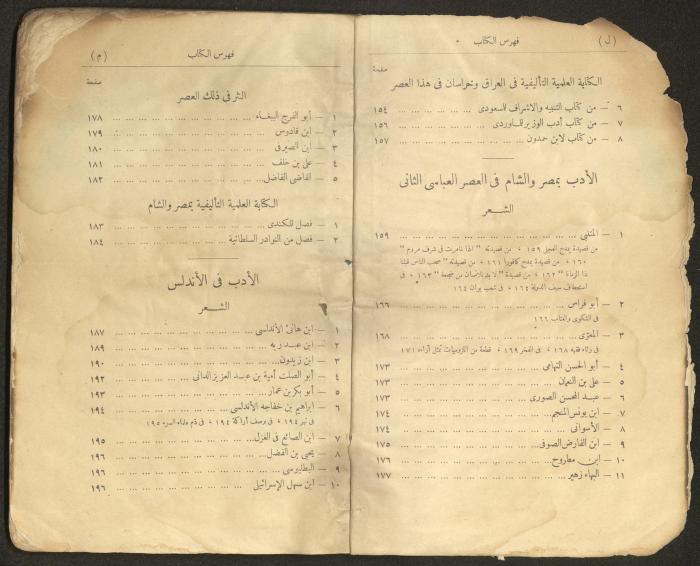 (ل) فهرس الكتاب
صفحة
الكتابة العلمية التأليفية فى العراق وخراسان فى هذا العصر
٦ — من كتاب التنبيه والاشراف للسعودى ... ١٥٤
٧ — من كتاب أدب الوزير للماوردى ... ١٥٦
٨ — من كتاب لابن حمدون ... ١٥٧
الأدب بمصر والشام فى العصر العباسى الثانى
الشعر
١ — المتنبى ... ١٥٩
من قصيدة يمدح العجلى ١٥٩ ، من قصيدته " اذا غامرت فى شرف مروم "
١٦٠ ، من قصيدة يمدح كافورا ١٦١ ، من قصيدته " صحب الناس قبلنا
ذا الزمانا " ١٦٢ ، من قصيدة " لا بد للانسان من ضجعة " ١٦٣ ، فى
استعطاف سيف الدولة ١٦٤ ، فى شعب بوان ١٦٤
٢ — أبو فراس ... ١٦٦
فى الشكوى والعتاب ١٦٦
٣ — المعرّى ... ١٦٨
فى رثاء فقيه ١٦٨ ، فى الفخر ١٦٩ ، قطعة من اللزوميات تمثل آراءه ١٧١
٤ — أبو الحسن التهامى ... ١٧٣
٥ — على بن النعمان ... ١٧٣
٦ — عبد المحسن الصورى ... ١٧٣
٧ — ابن يونس المنجم ... ١٧٤
٨ — الأسوانى ... ١٧٤
٩ — ابن الفارض الصوفى ... ١٧٥
١٠ — ابن مطروح ... ١٧٦
١١ — البهاء زهير ... ١٧٧
فهرس الكتاب (م)
صفحة
النثر فى ذلك العصر
١ — أبو الفرج الببغاء ... ١٧٨
٢ — ابن قادوس ... ١٧٩
٣ — ابن الصيرفى ... ١٨٠
٤ — على بن خلف ... ١٨١
٥ — القاضى الفاضل ... ١٨٢
الكتابة العلمية التأليفية بمصر والشام
١ — فصل للكندى ... ١٨٣
٢ — فصل من النوادر السلطانية ... ١٨٤
الأدب فى الأندلس
الشعر
١ — ابن هانئ الأندلسى ... ١٨٧
٢ — ابن عبد ربه ... ١٨٩
٣ — ابن زيدون ... ١٩٠
٤ — أبو الصلت أمية بن عبد العزيز الدانى ... ١٩٢
٥ — أبو بكر بن عمار ... ١٩٣
٦ — ابراهيم بن خفاجه الأندلسى ... ١٩٤
فى نهر ١٩٤ ، فى وصف أراكة ١٩٤ ، فى ذم علماء السوء ١٩٥
٧ — ابن الصائغ فى الغزل ... ١٩٥
٨ — يحيى بن الفضل ... ١٩٦
٩ — البطليوسى ... ١٩٦
١٠ — ابن سهل الإسرائيلى ... ١٩٦